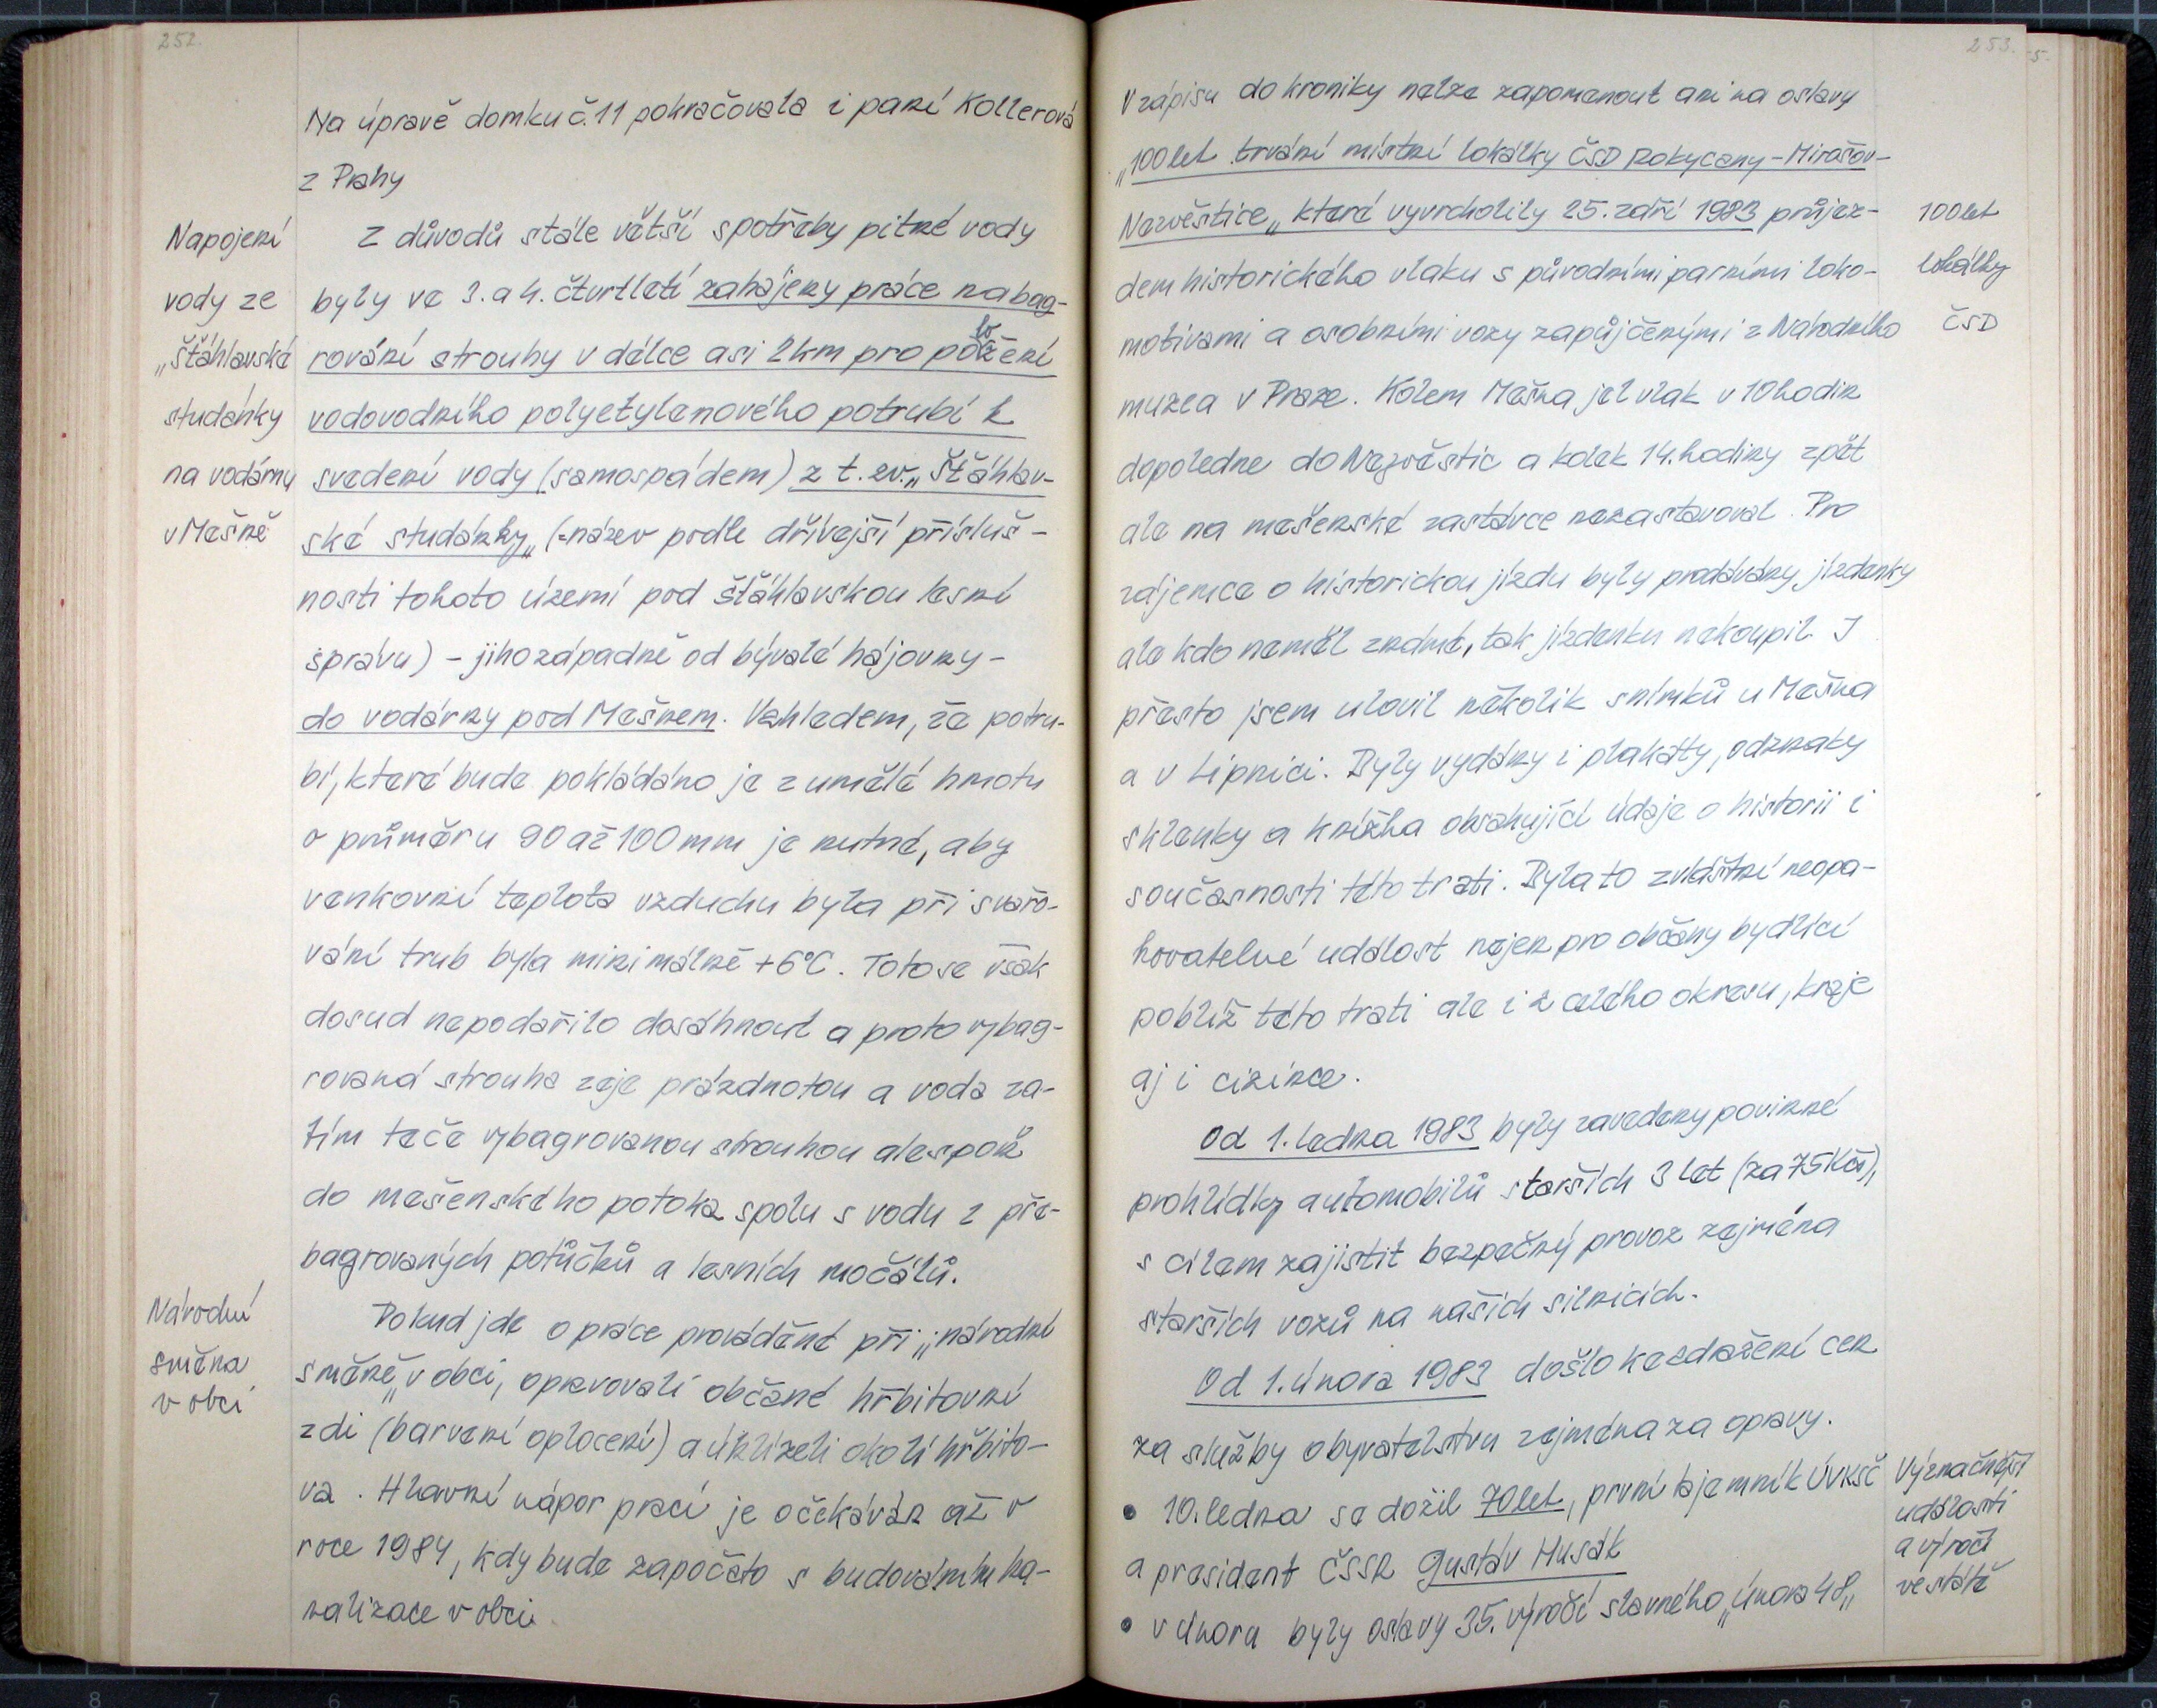 252.
Na úpravě domku č. 11 pokračovala i paní Kollerová
z Prahy
Napojení
vody ze
„Štáhlavské
studánky
na vodárnu
v Mešně
Z důvodů stále větší spotřeby pitné vody
byly ve 3. a 4. čtvrtletí zahájeny práce na bag-
rování strouhy v délce asi 2 km pro položení
vodovodního polyetylenového potrubí k
svedení vody (samospádem) z t. zv. „Štáhlav-
ské studánky„ (=název podle dřívější přísluš-
nosti tohoto území pod štáhlavskou lesní
správu) - jihozápadně od bývalé hájovny -
do vodárny pod Mešnem. Vzhledem, že potru-
bí, které bude pokládáno je z umělé hmotu
o průměru 90 až 100 mm je nutné, aby
venkovní teplota vzduchu byla při svařo-
vání trub byla minimálně +6°C. Toto se však
dosud nepodařilo dosáhnout a proto vybag-
rovaná strouha zeje prázdnotou a voda za-
tím teče vybagrovanou strouhou alespoň
do mešenského potoka spolu s vodu z pře-
bagrovaných potůčků a lesních močálů.
Národní
směna
v obci
Pokud jde o práce prováděné při „národní
směně„ v obci, opravovali občané hřbitovní
zdi (barvení oplocení) a uklízeli okolí hřbito-
va. Hlavní nápor prací je očekáván až v
roce 1984, kdy bude započato s budováním ka-
nalizace v obci.
253.
V zápisu do kroniky nelze zapomenout ani na oslavy
„100 let trvání místní lokálky ČSD Rokycany - Mirošov -
Nezvěstice„ které vyvrcholily 25. září 1983 průjez-
dem historického vlaku s původními parními loko-
motivami a osobními vozy zapůjčenými z Národního
muzea v Praze. Kolem Mešna jel vlak v 10 hodin
dopoledne do Nezvěstic a kolek 14. hodiny zpět
ale na mešenské zastávce nezastavoval. Pro
zájemce o historickou jízdu byly prodávány jízdenky
ale kdo neměl známé, tak jízdenku nekoupil. I
přesto jsem ulovil několik snímků u Mešna
a v Lipnici. Byly vydány i plakáty, odznaky
sklenky a knížka obsahující údaje o historii i
současnosti této trati. Byla to zvláštní neopa-
kovatelné událost nejen pro občany bydlící
poblíž této trati ale i z celého okresu, kraje
aj i cizince.
100 let
lokálky
ČSD
Od 1. ledna 1983 byly zavedeny povinné
prohlídky automobilů starších 3 let (za 75 Kčs),
s cílem zajistit bezpečný provoz zejména
starších vozů na našich silnicích.
Od 1. února 1983 došlo ke zdražení cen
za služby obyvatelstvu zejména za opravy.
• 10. ledna se dožil 70 let, první tajemník ÚVKSČ
a president ČSSR Gustáv Husák
• v únoru byly oslavy 35. výročí slavného „Února 48„
Význačnější
události
a výročí
ve státě